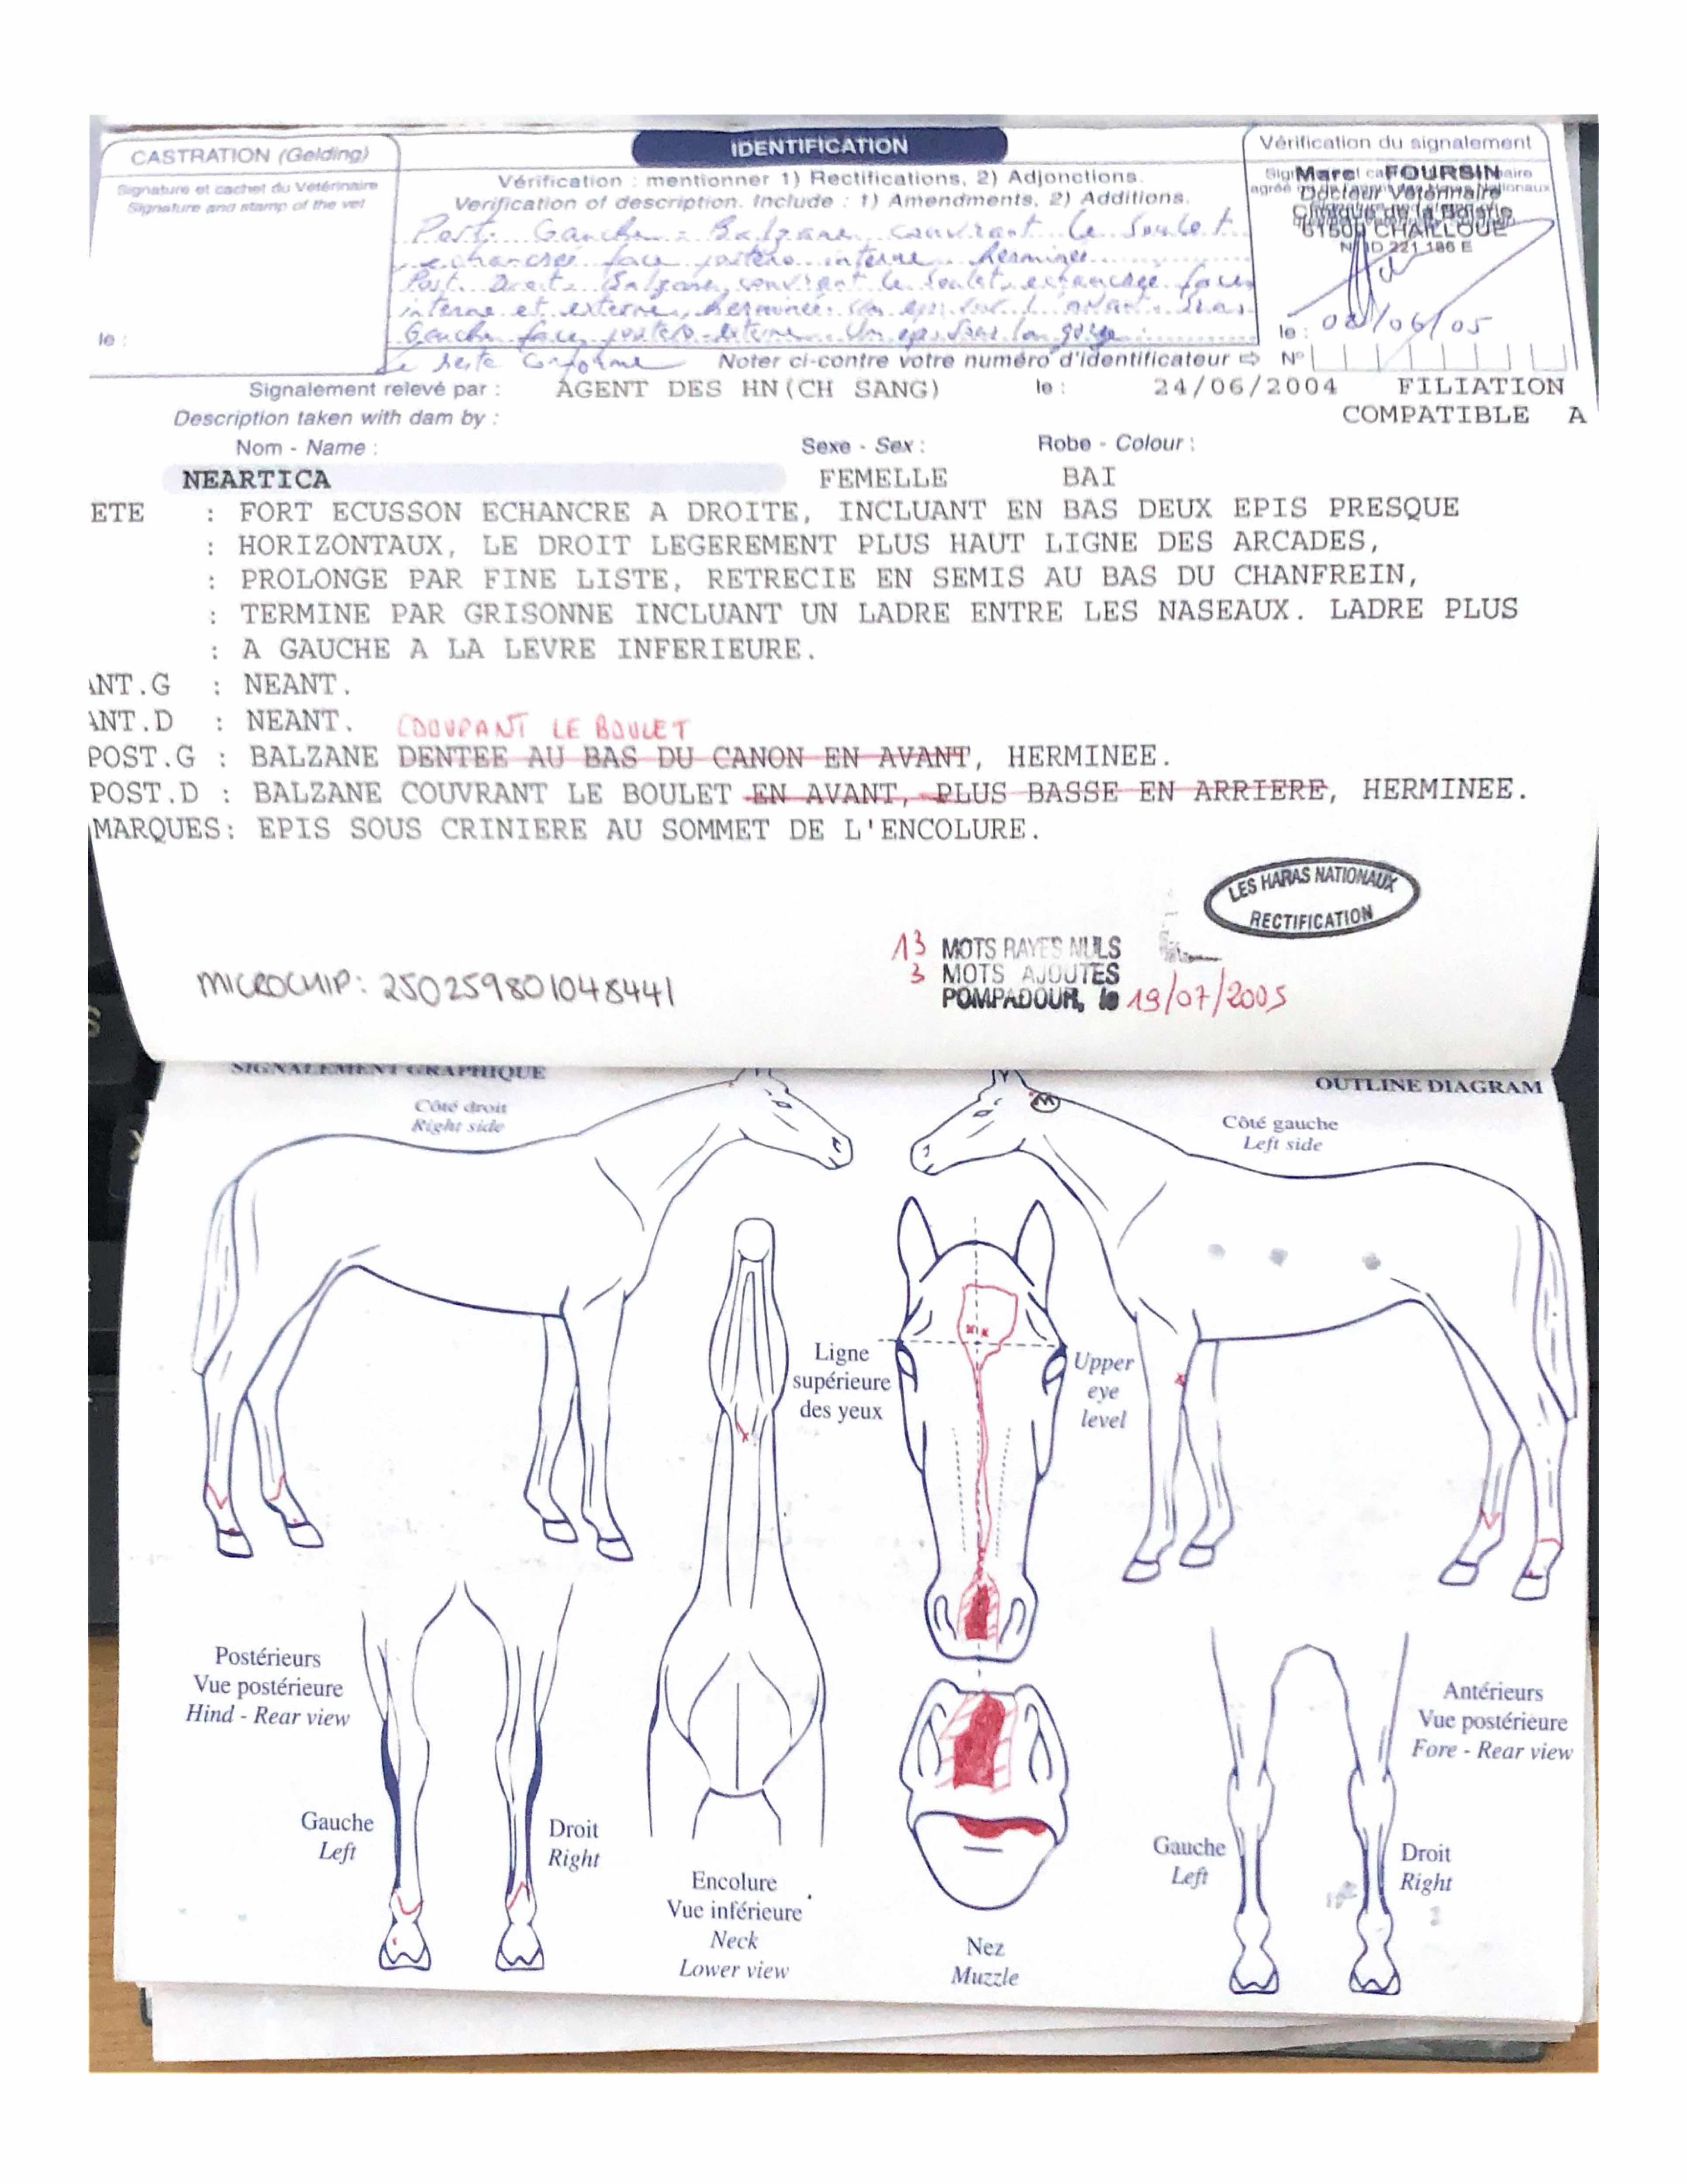 CASTRATION (Gelding)
Signature et cachet du Vétérinaire
Signature and stamp of the vet
le :
IDENTIFICATION
Vérification : mentionner 1) Rectifications, 2) Adjonctions.
Verification of description. Include : 1) Amendments, 2) Additions.
Post. Gauche : Balzane couvrant le boulet
echancrée face postero interne herminée
Post. Droit. Balzane couvrant le boulet, echancrée faces
interne et externe, herminée. Un epi sur l'avant bras
Gauche face postero-externe. Un epi sous la gorge
Le reste conforme
Noter ci-contre votre numéro d'identificateur ⇨ N°
Vérification du signalement
Marc FOURSIN
Docteur Vétérinaire
Clinique de la
61500 CHAILLOUE
N° ID 221 186 E
le : 08/06/05
Signalement relevé par : AGENT DES HN(CH SANG) le : 24/06/2004 FILIATION
Description taken with dam by : COMPATIBLE A
Nom - Name : Sexe - Sex : Robe - Colour :
NEARTICA FEMELLE BAI
ETE : FORT ECUSSON ECHANCRE A DROITE, INCLUANT EN BAS DEUX EPIS PRESQUE
: HORIZONTAUX, LE DROIT LEGEREMENT PLUS HAUT LIGNE DES ARCADES,
: PROLONGE PAR FINE LISTE, RETRECIE EN SEMIS AU BAS DU CHANFREIN,
: TERMINE PAR GRISONNE INCLUANT UN LADRE ENTRE LES NASEAUX. LADRE PLUS
: A GAUCHE A LA LEVRE INFERIEURE.
ANT.G : NEANT.
ANT.D : NEANT. COOUPANT LE BOULET
POST.G : BALZANE DENTEE AU BAS DU CANON EN AVANT, HERMINEE.
POST.D : BALZANE COUVRANT LE BOULET EN AVANT, PLUS BASSE EN ARRIERE, HERMINEE.
MARQUES: EPIS SOUS CRINIERE AU SOMMET DE L'ENCOLURE.
LES HARAS NATIONAUX
RECTIFICATION
13 MOTS RAYES NULS
3 MOTS AJOUTES
POMPADOUR, le 19/07/2005
MICROCHIP: 250259801048441
SIGNALEMENT GRAPHIQUE
OUTLINE DIAGRAM
Côté droit
Right side
M
Côté gauche
Left side
Ligne
supérieure
des yeux
Upper
eye
level
Postérieurs
Vue postérieure
Hind - Rear view
Antérieurs
Vue postérieure
Fore - Rear view
Gauche
Left
Droit
Right
Encolure
Vue inférieure
Neck
Lower view
Nez
Muzzle
Gauche
Left
Droit
Right